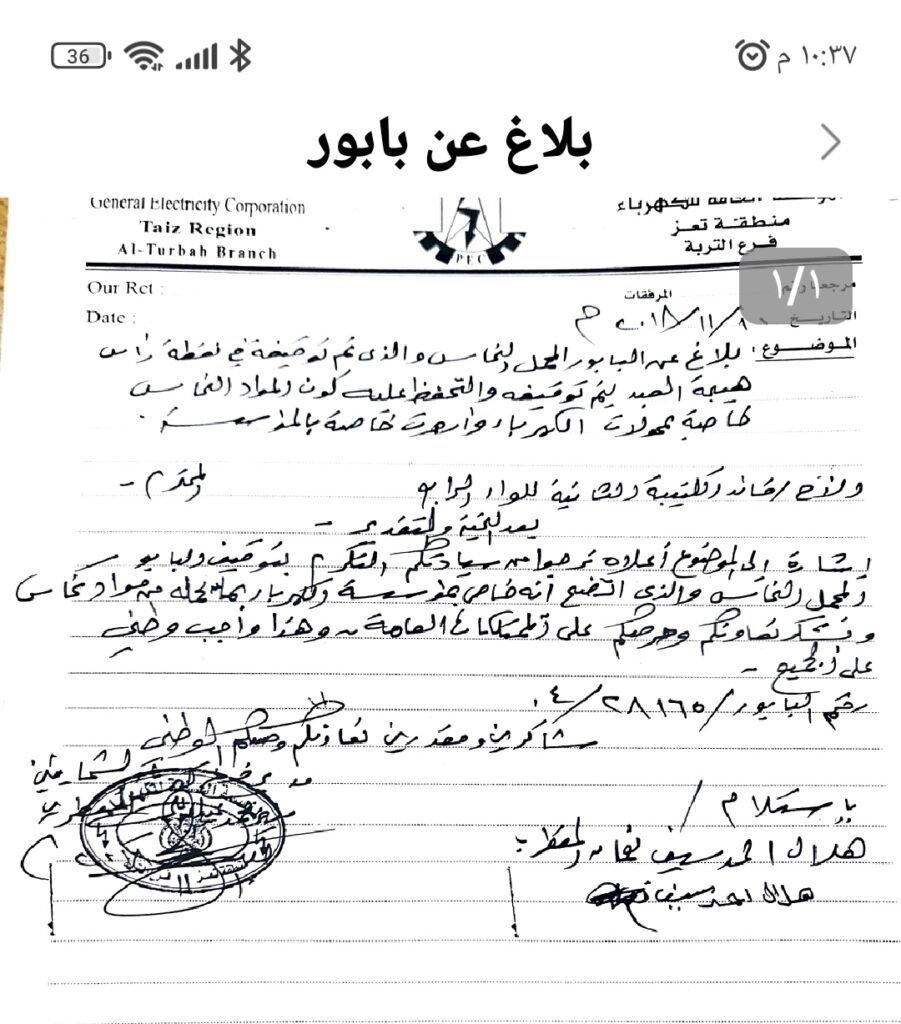 36
١٠:٣٧ م
بلاغ عن بابور
General Electricity Corporation
Taiz Region
Al-Turbah Branch
للكهرباء
منطقة تعز
فرع التربة
PEC
١/١
Our Ref :
المرفقات
Date :
التاريخ
٢٠١٨/١١/٨ م
الموضوع: بلاغ عن البابور المحمل النحاس والذي تم توقيفه في نقطة رأس
هيجة العبد ليتم توقيفه والتحفظ عليه كون المواد النحاس
خاصة بمحولات الكهرباء خاصة بالمؤسسة
الأخ / قائد الكتيبة الثانية للواء الرابع المحترم -
بعد التحية والتقدير -
إشارة إلى الموضوع أعلاه نرجوا من سيادتكم التكرم بتوقيف البابور
المحمل النحاس والذي اتضح أنه خاص بمؤسسة الكهرباء بما تحمله من مواد نحاس
ونشكر تعاونكم وحرصكم على الممتلكات العامة وهذا واجب وطني
على الجميع -
رقم البابور / ٢٨١٦٥ / ٤
شاكرين ومقدرين تعاونكم وحسكم الوطني
بإستلام /
هلال احمد سيف
هلال احمد سيف